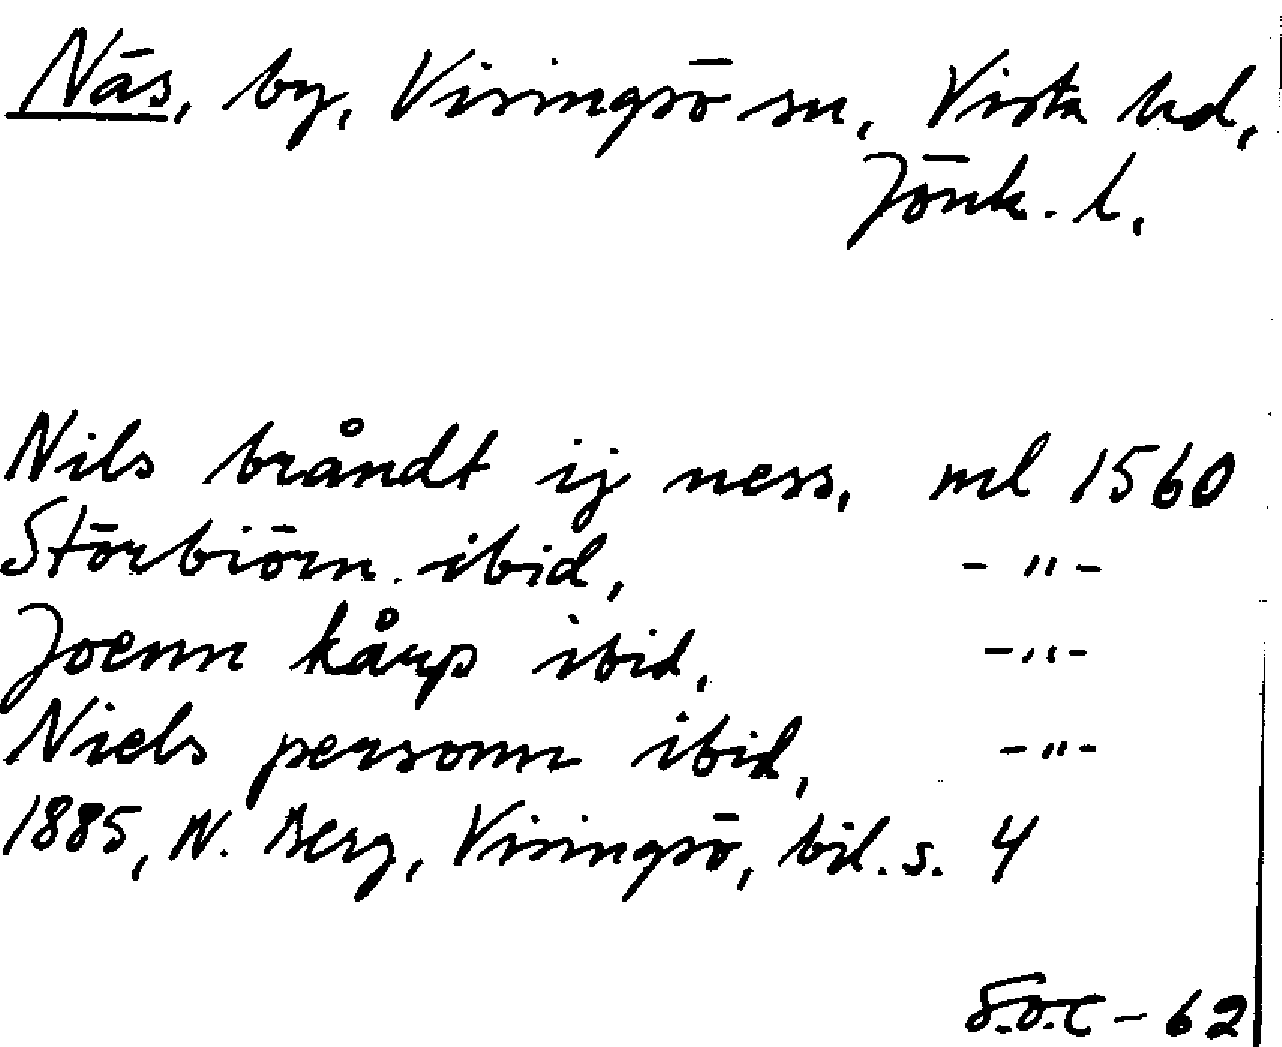 Näs, by, Visingsö sn, Vista hd,
Jönk. l.
Nils bråndt ij ness, ml 1560
Störbiörn ibid, - " -
Joenn kårp ibid, - " -
Niels personn ibid, - " -
1885, N. Berg, Visingsö, bil. s. 4
S.O.C - 62